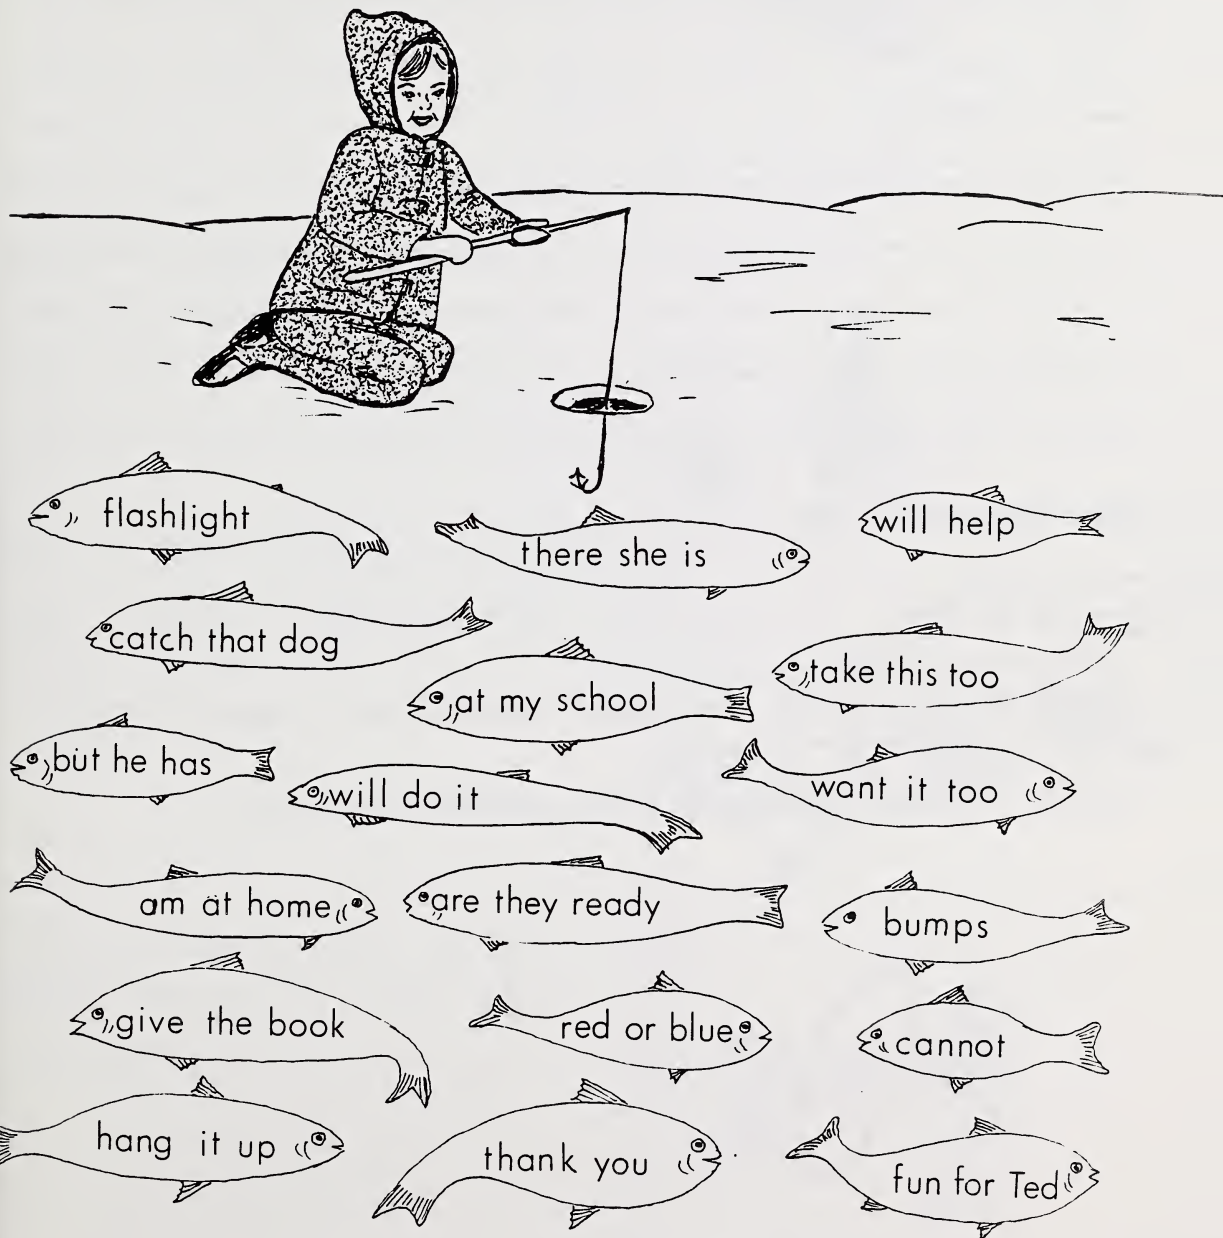 flashlight
there she is
will help
catch that dog
at my school
take this too
but he has
will do it
want it too
am at home
are they ready
bumps
give the book
red or blue
cannot
hang it up
thank you
fun for Ted